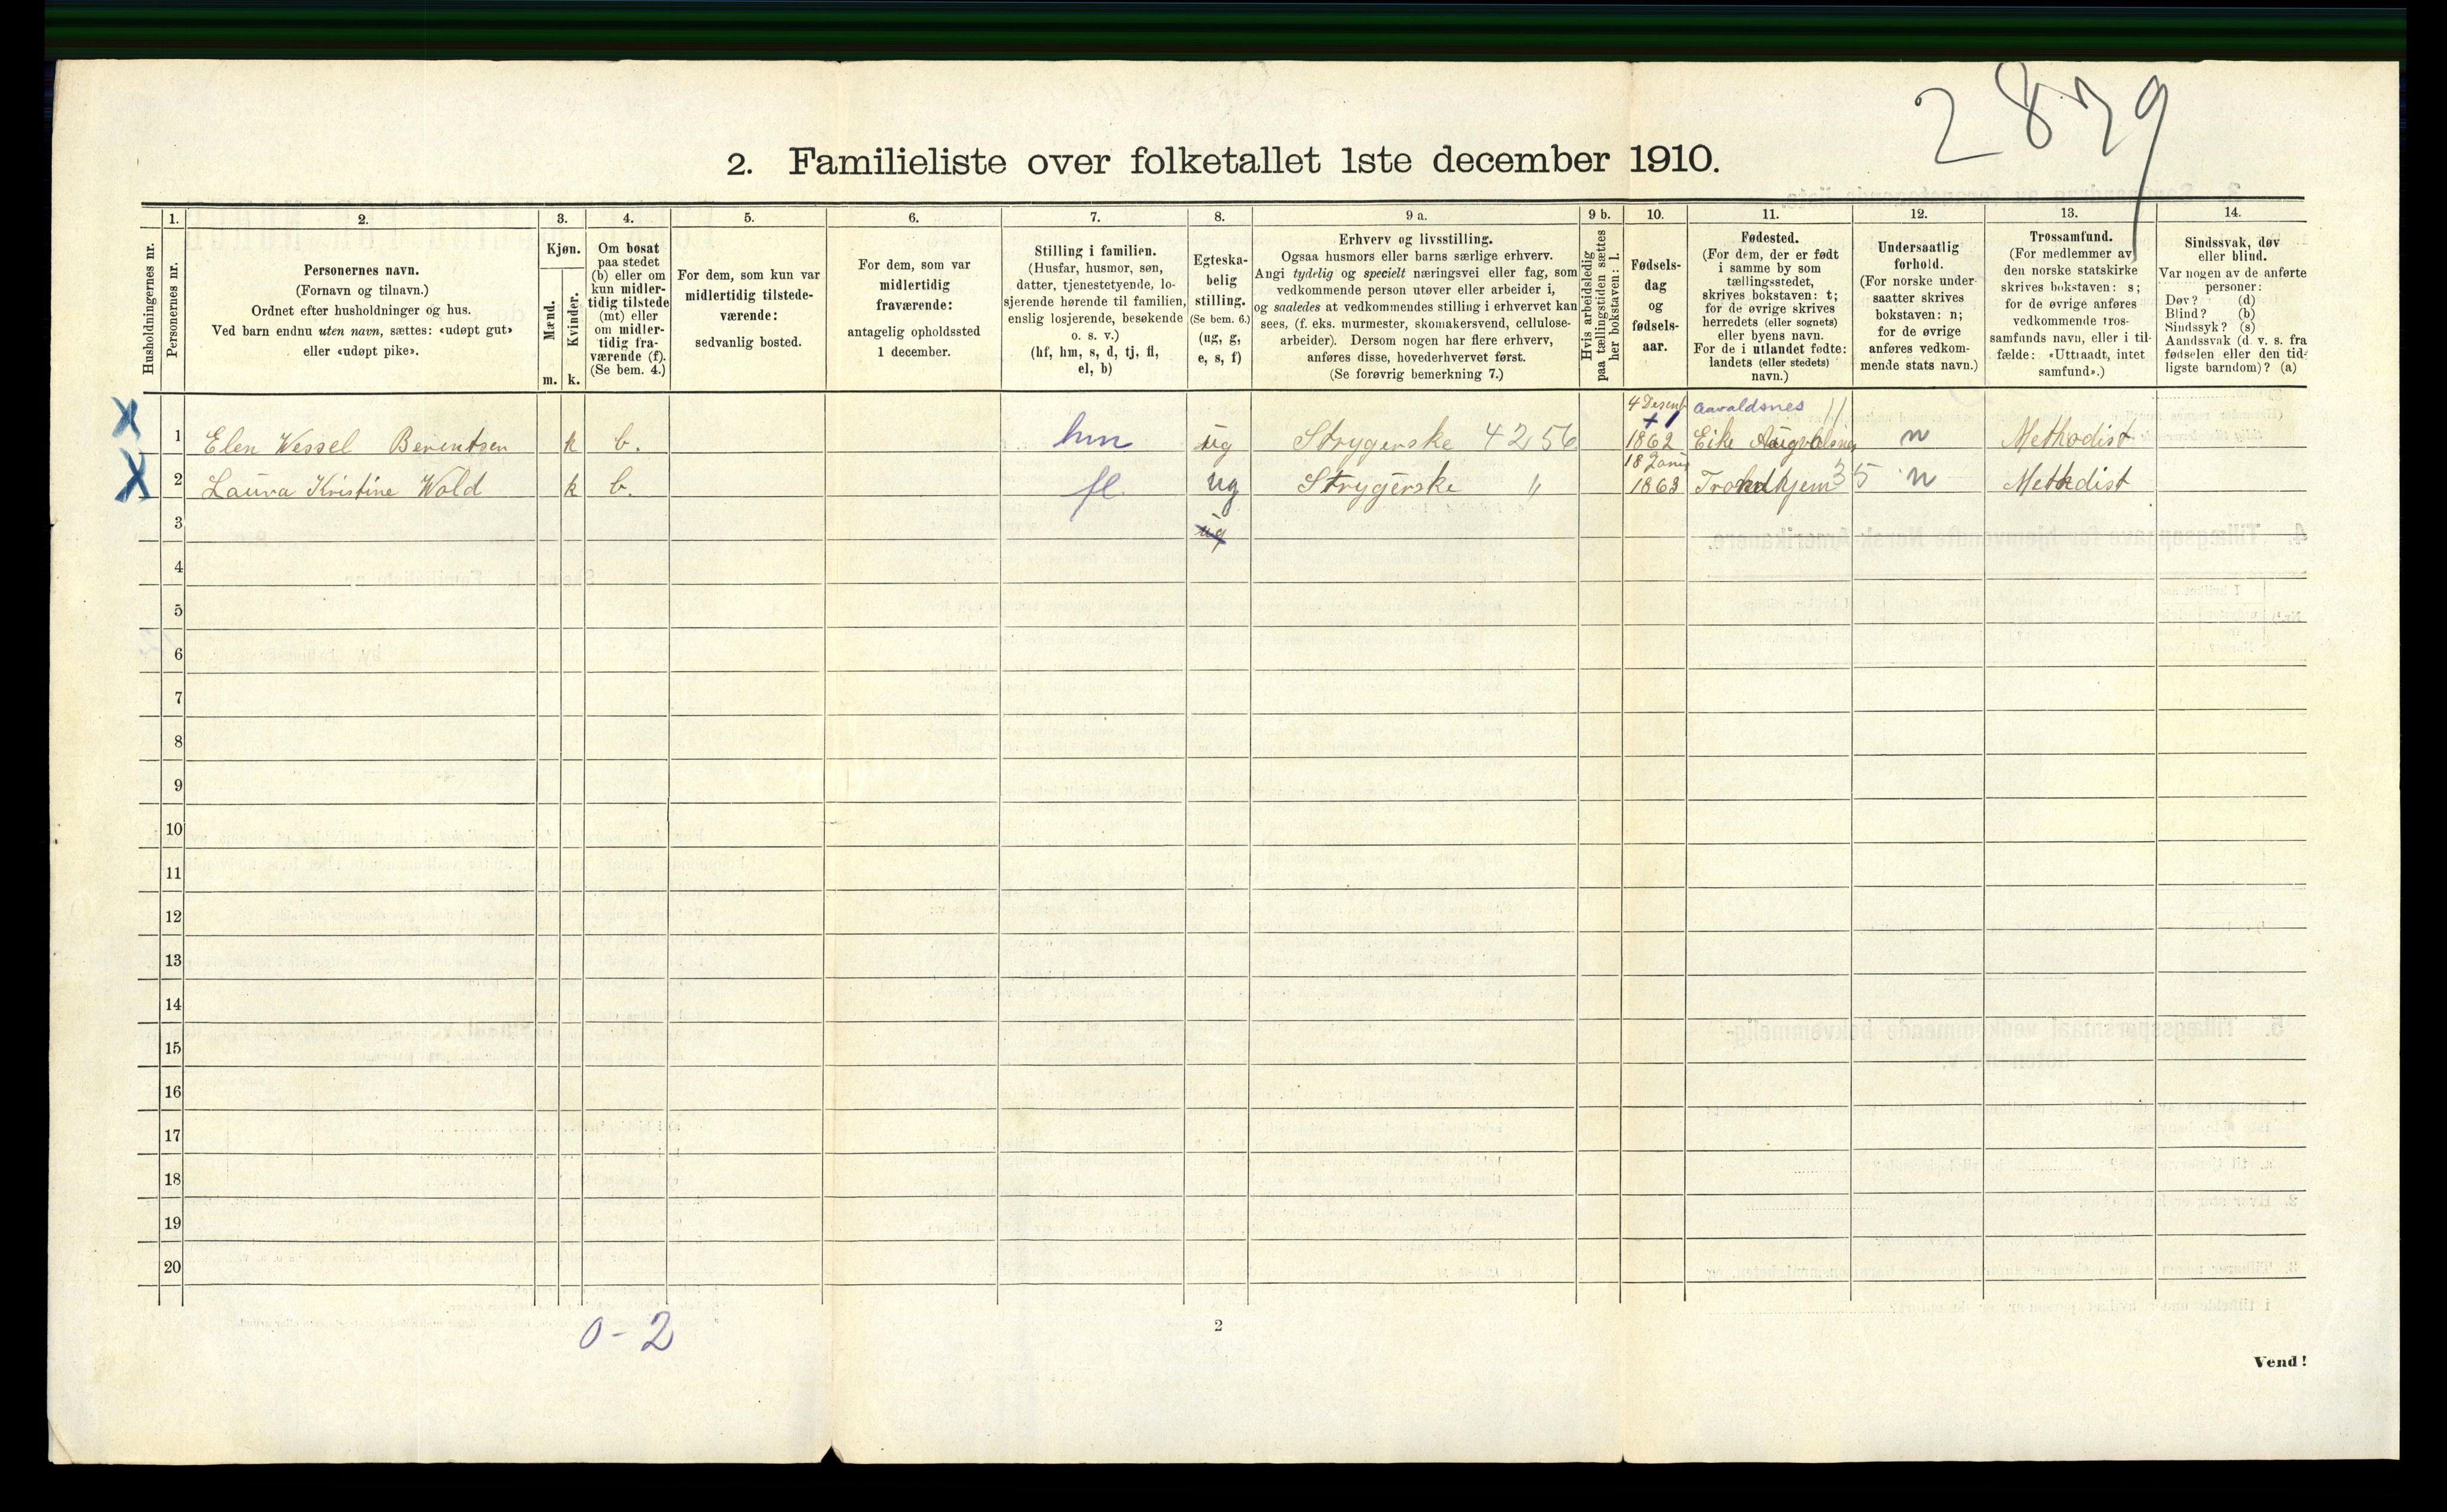 2879
2. Familieliste over folketallet 1ste december 1910.
Husholdningernes nr.
1.
Personernes nr.
2.
Personernes navn.
(Fornavn og tilnavn.)
Ordnet efter husholdninger og hus.
Ved barn endnu uten navn, sættes: «udøpt gut»
eller «udøpt pike».
3.
Kjøn.
Mænd.
Kvinder.
m. k.
4.
Om bosat
paa stedet
(b) eller om
kun midler-
tidig tilstede
(mt) eller
om midler-
tidig fra-
værende (f).
(Se bem. 4.)
5.
For dem, som kun var
midlertidig tilstede-
værende:
sedvanlig bosted.
6.
For dem, som var
midlertidig
fraværende:
antagelig opholdssted
1 december.
7.
Stilling i familien.
(Husfar, husmor, søn,
datter, tjenestetyende, lo-
sjerende hørende til familien,
enslig losjerende, besøkende
o. s. v.)
(hf, hm, s, d, tj, fl,
el, b)
8.
Egteska-
belig
stilling.
(Se bem. 6.)
(ug, g,
e, s, f)
9 a.
Erhverv og livsstilling.
Ogsaa husmors eller barns særlige erhverv.
Angi tydelig og specielt næringsvei eller fag, som
vedkommende person utøver eller arbeider i,
og saaledes at vedkommendes stilling i erhvervet kan
sees, (f. eks. murmester, skomakersvend, cellulose-
arbeider). Dersom nogen har flere erhverv,
anføres disse, hovederhvervet først.
(Se forøvrig bemerkning 7.)
9 b.
Hvis arbeidsledig
paa tællingstiden sættes
her bokstaven: l.
10.
Fødsels-
dag
og
fødsels-
aar.
11.
Fødested.
(For dem, der er født
i samme by som
tællingsstedet,
skrives bokstaven: t;
for de øvrige skrives
herredets (eller sognets)
eller byens navn.
For de i utlandet fødte:
landets (eller stedets)
navn.)
12.
Undersaatlig
forhold.
(For norske under-
saatter skrives
bokstaven: n;
for de øvrige
anføres vedkom-
mende stats navn.)
13.
Trossamfund.
(For medlemmer av
den norske statskirke
skrives bokstaven: s;
for de øvrige anføres
vedkommende tros-
samfunds navn, eller i til-
fælde: «Uttraadt, intet
samfund».)
14.
Sindssvak, døv
eller blind.
Var nogen av de anførte
personer:
Døv? (d)
Blind? (b)
Sindssyk? (s)
Aandssvak (d. v. s. fra
fødselen eller den tid-
ligste barndom)? (a)
4 Desemb Aavaldsnes 11
X 1 Elen Wessel Berentsen k b. hm ug Strygerske 4256 1862 Eike n Methodist
18
X 2 Laura Kristine Wold k b. fl. ug Strygerske " 1863 Trondhjem 35 n Methdist
3 ug
4
5
6
7
8
9
10
11
12
13
14
15
16
17
18
19
20
0-2
2
Vend!